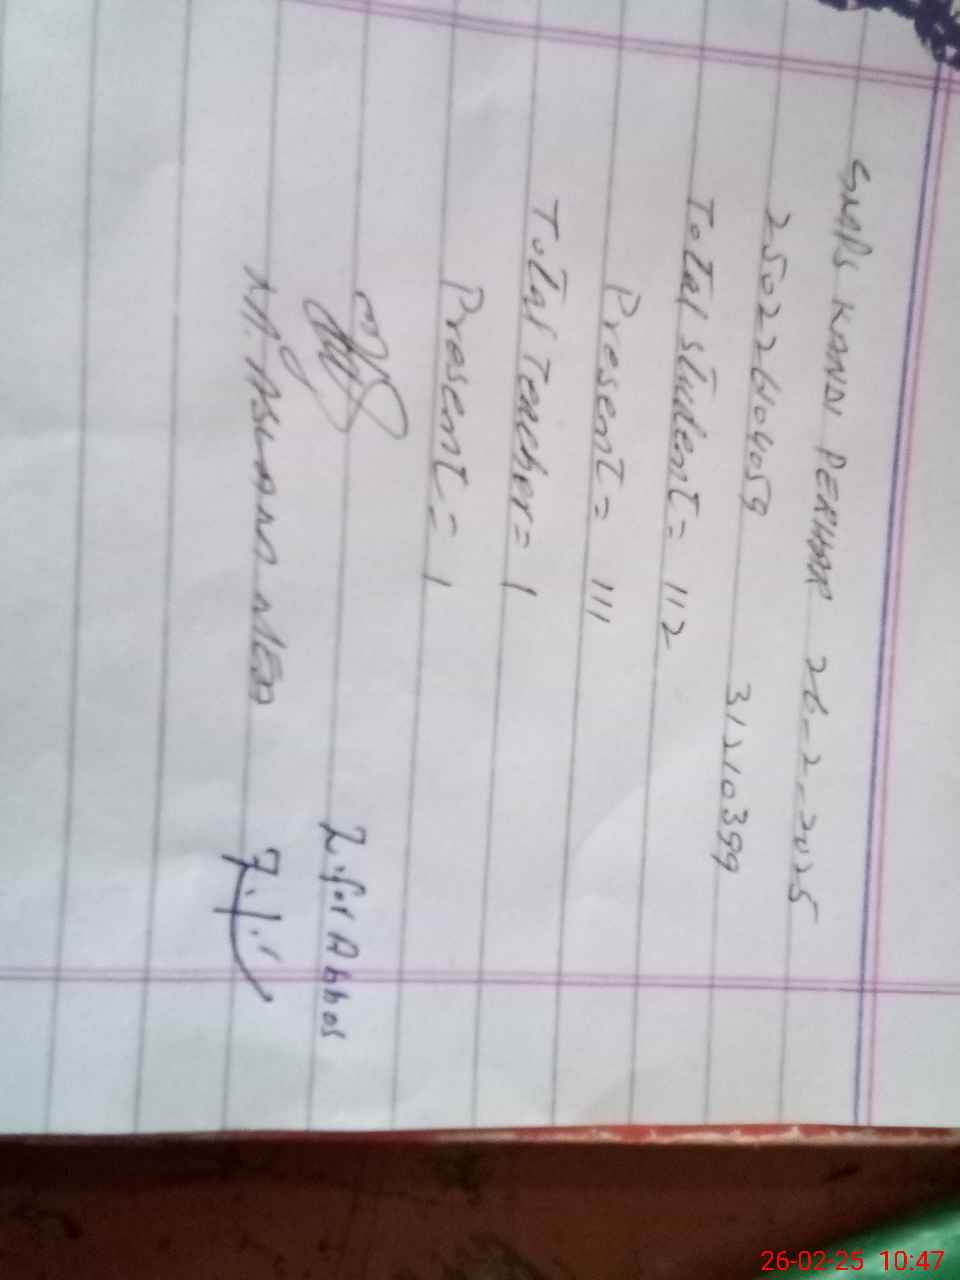 GMPS KANDI PERHAR 26-2-2025
250226104059 31210399
Total Student = 112
Present = 111
Total Teacher = 1
Present = 1
Zifor Abbas
M. ASLAM
26-02-25 10:47